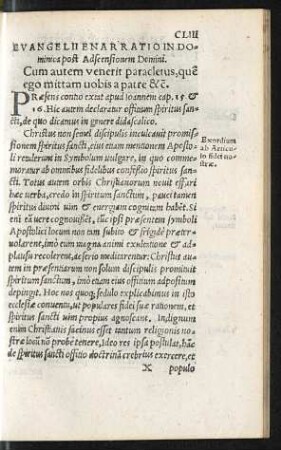 CLIII
EVANGELII ENARRATIO IN DO-
minica post Adscensionem Domini.
Cum autem venerit paracletus, quē
ego mittam uobis a patre &c̄.
PRæsens contio extat apud Ioannem cap. 15 &
16. Hic autem declaratur offitium spiritus san-
cti, de quo dicamus in genere didascalico.
Christus non semel discipulis inculcauit promis-
sionem spiritus sancti, eius etiam mentionem Aposto-
li reddere in Symbolum uulgare, in quo com-
memoratur ab omnibus fidelibus confessio spiritus san-
cti. Totus autem orbis Christianorum neuit essari
hæc uerba, credo in spiritum sanctum, at paucissimi
spiritus diuini uim & energiam cognitam habet. Si
eni uere cognouissēt, cū ipsi præsentem symboli
Apostolici locum non cum subito & frigide prætere-
uolarent, imo cum magna animi exultatione & ad-
plausu recolerent, ac serio meditarentur: Christus au-
tem in præsentiarum non solum discipulis promittit
spiritum sanctum, imo etiam eius offitium adpositum
depingit. Hoc nos quoq; sedulo explicabimus in isto
ecclesiæ conuentu, ut populares fidei suæ rationem, et
spiritus sancti uim propius agnoscant. Indignum
enim Christianis facinus esset tantum religionis no-
stræ locū nō probe tenere, ideo res ipsa postulat, hāc
de spiritus sancti offitio doctrinā crebrius exercere, et
X populo
Exordium
ab Articu-
lo fidei no-
stræ.